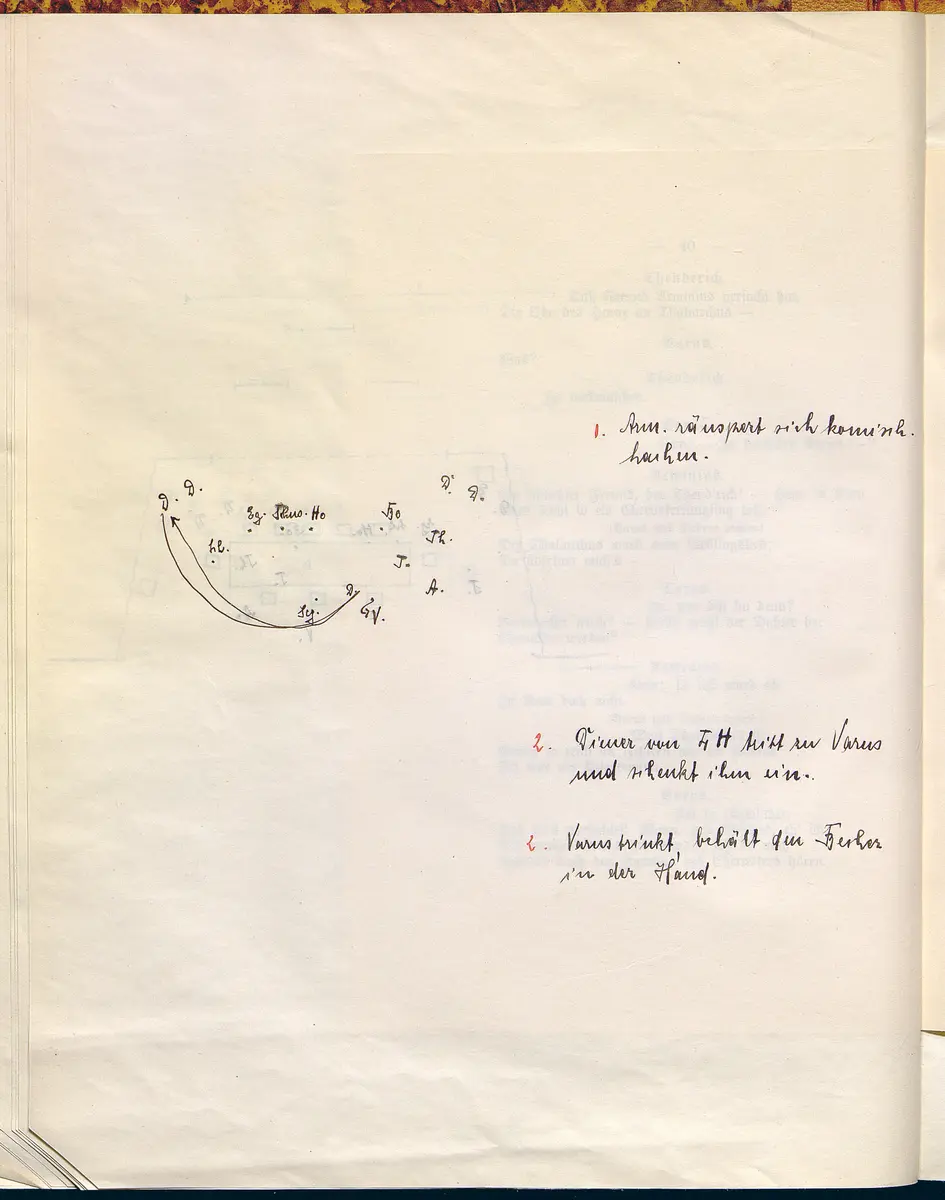 1. Arm. räuspert sich komisch.
lachen.
D. D.
D. D.
Sg. Thus. Ho
Bo
Th.
T.
A.
D.
Sg.
2. Diener von H tritt zu Varus
und schenkt ihm ein.
2. Varus trinkt, behält den Becher
in der Hand.